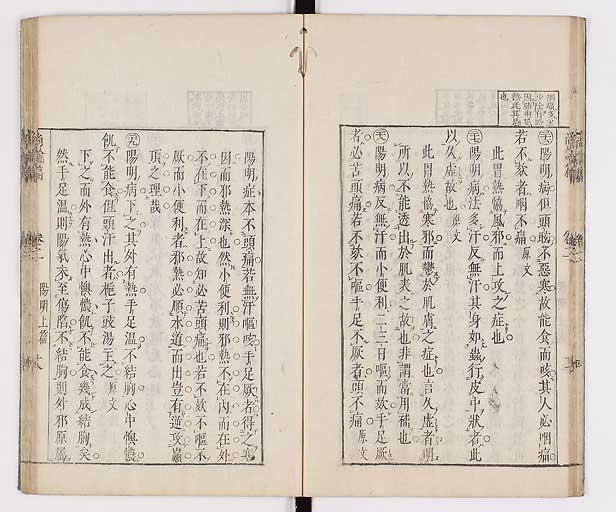 陽明病但頭眩不惡寒故能食而咳其人必咽痛
若不欬者咽不痛 原文
此胃熱協風邪而上攻之症也
陽明病法多汗反無汗其身如蟲行皮中狀者此
以久虛故也 原文
此胃熱協寒邪而鬱於肌膚之症也言久虛者明
所以不能透出於肌表之故也非謂當用補也
陽明病反無汗而小便利二三日嘔而欬手足厥
者必苦頭痛若不欬不嘔手足不厥者頭不痛 原文
陽明症本不頭痛若無汗嘔咳手足厥者得之寒
因而邪熱深也然小便利則邪熱不在內而在外
不在下而在上故知必苦頭痛也若不欬不嘔不
厥而小便利者邪熱必順水道而出豈有逆攻巔
頂之理哉
陽明病下之其外有熱手足溫不結胸心中懊憹
飢不能食但頭汗出者梔子豉湯主之 原文
下之而外有熱心中懊憹飢不能食幾成結胸矣
然手足溫則陽氣未至傷陷不結胸則外邪原屬
陽明上篇